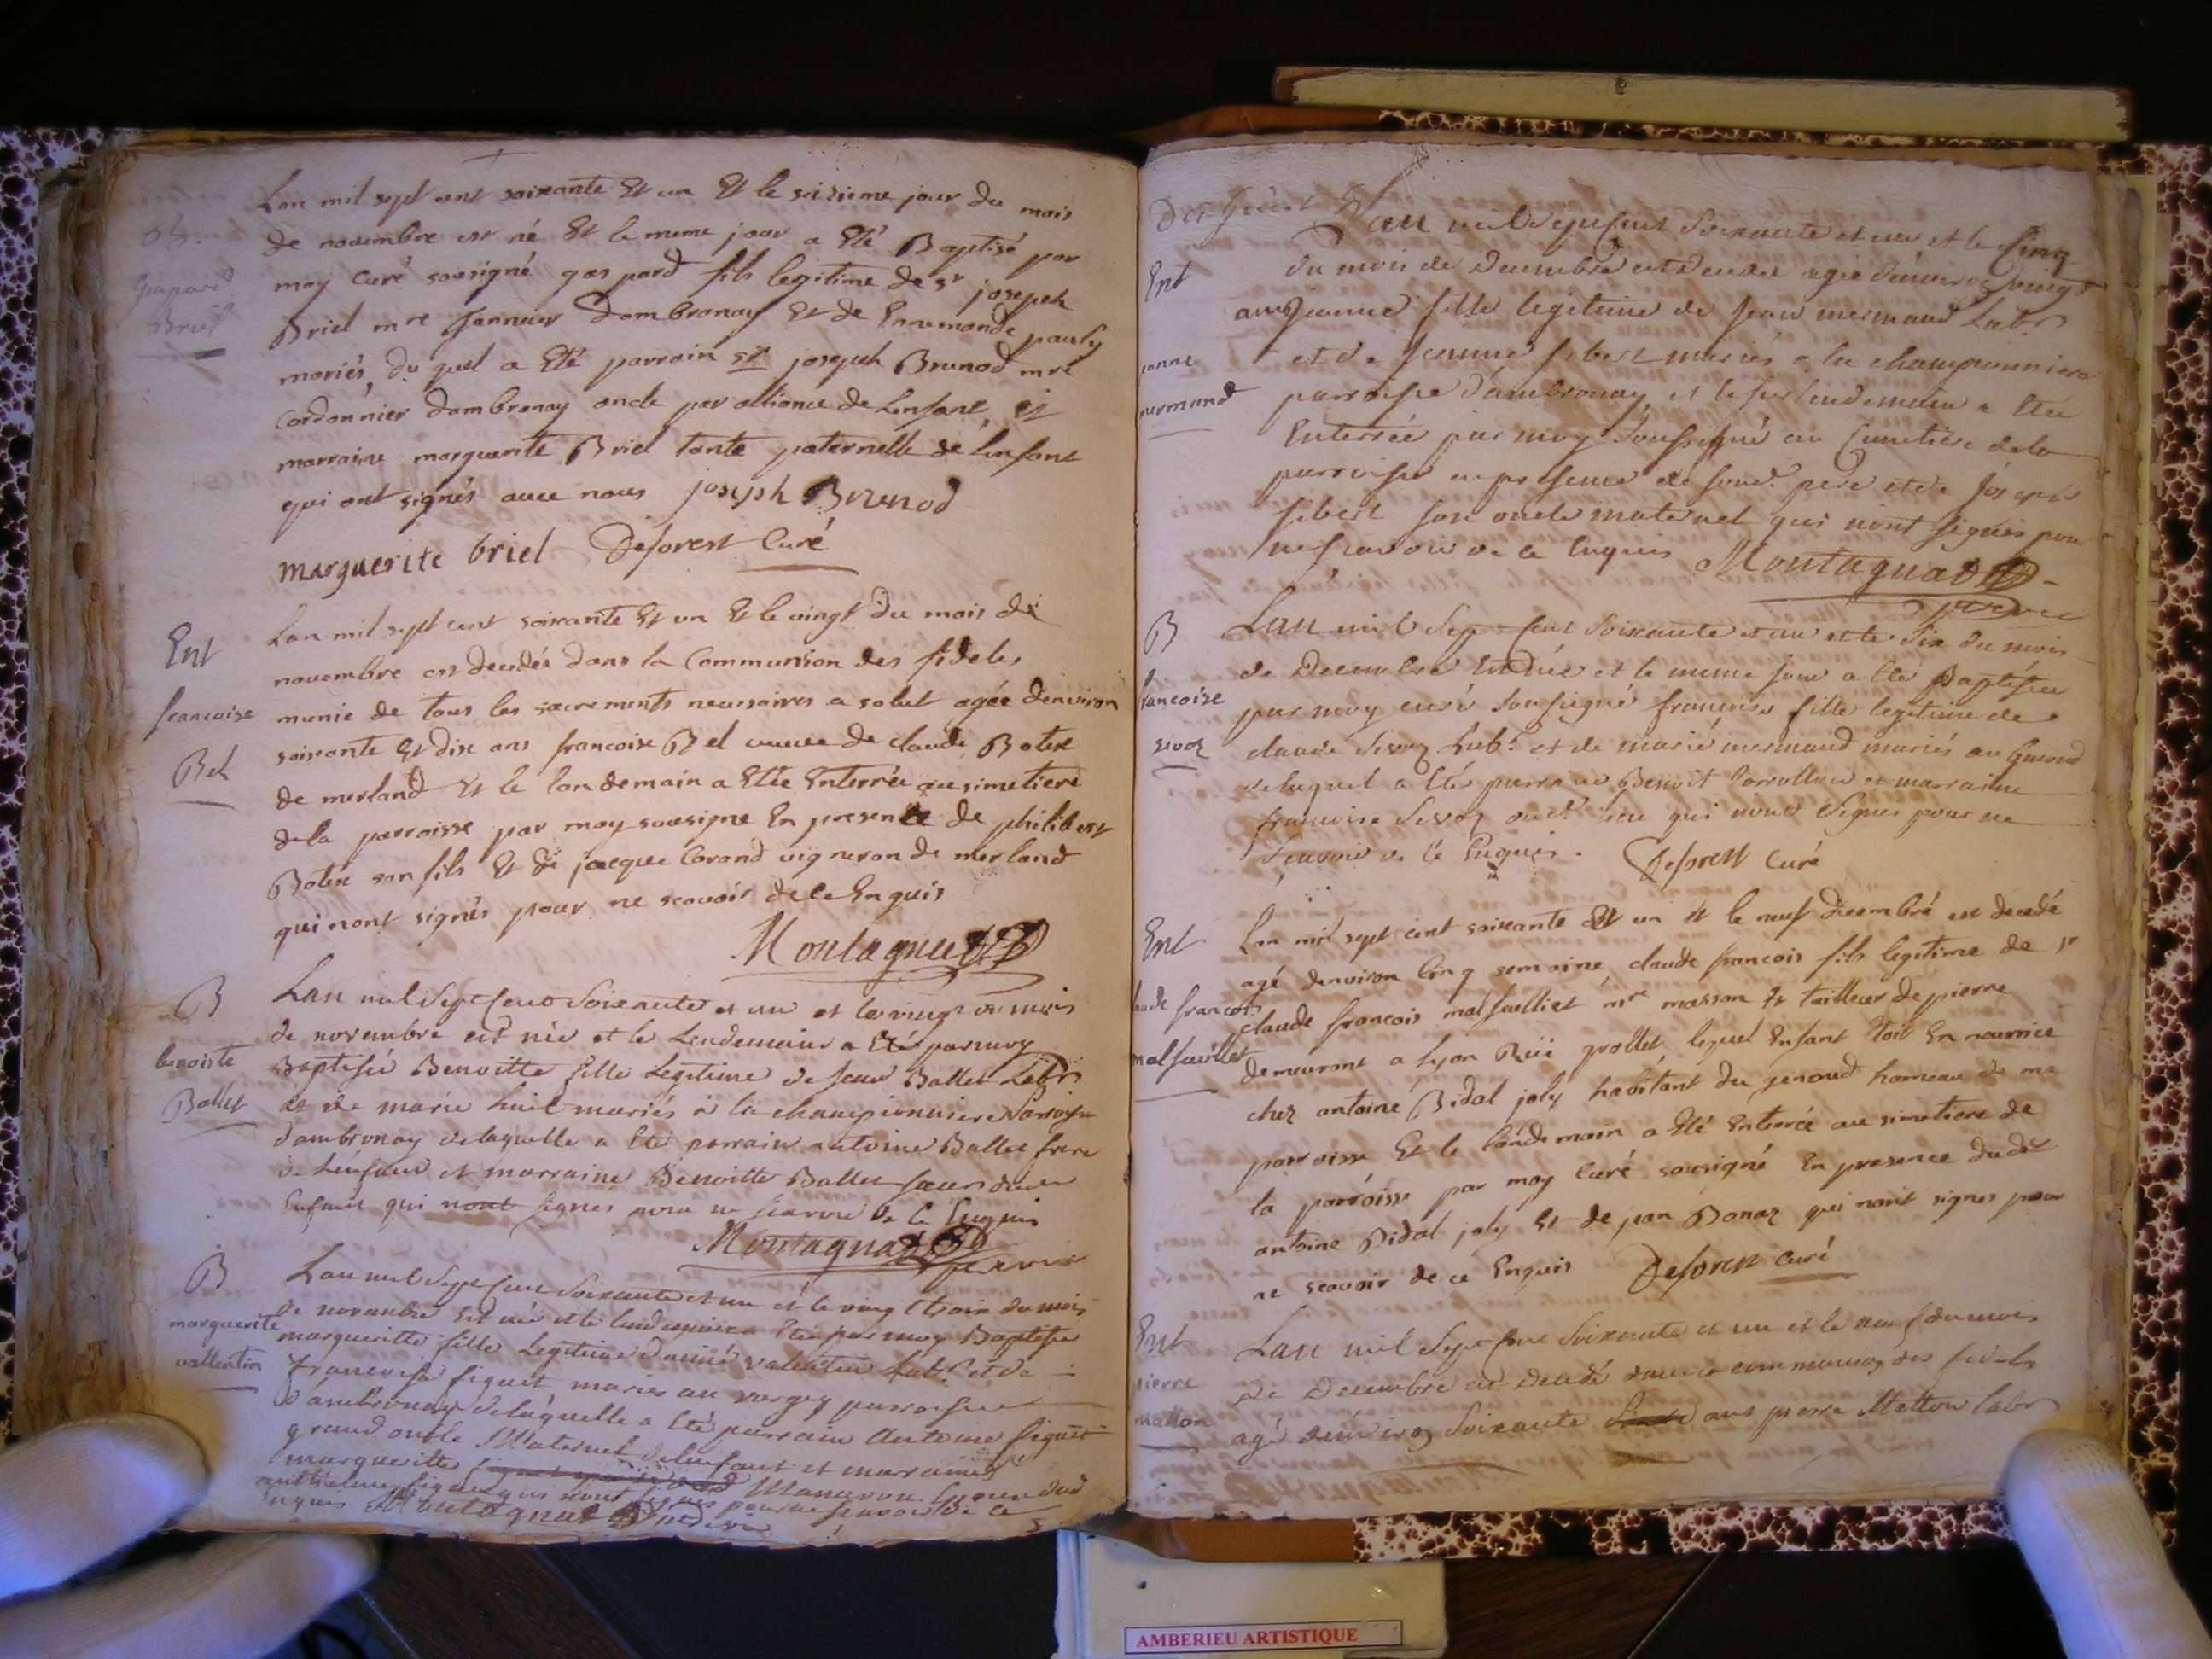 B.
Gaspard
Briel
Lan mil sept cent soixante Et un Et le sizieme jour du mois
de novembre est né Et le meme jour a Eté Baptisé par
moy Curé sousigné gaspard fils legitime de sr joseph
Briel mre Tanneur Dambronay Et de Ennemonde pauly
mariés, du quel a Eté parrain sr joseph Brunod mre
Cordonnier dambronay oncle par alliance de Lenfant, et
marraine marguerite Briel tante paternelle de Lenfant
qui ont signés avec nous joseph Brunod
marguerite briel Deforest Curé
Ent
francoise
Bel
Lan mil sept cent soixante Et un Et le vingt du mois de
novembre est decedée dans la Communion des fideles
munie de tous les sacrements necessaires a salut agée denviron
soixante Et dix ans francoise Bel veuve de claude Botex
de merland Et le landemain a Etée Enterrée au simetiere
de la parroisse par moy sousigne En presence de philibert
Botex son fils Et de jacque Corand vigneron de merland
qui nont signés pour ne scavoir de ce Enquis
Montagnat
B
benoiste
Ballet
Lan mil Sept Cent Soixante et un et le vingt du mois
de novembre est née et le Lendemain a Eté par moy
Baptisée Benoitte fille Legitime de Jean Ballet Labr
et de marie huit mariés à la championniere Parroisse
dambronay de laquelle a Eté parrain antoine Ballet frere
de Lenfant et marraine Benoitte Ballet soeur dudit
Enfant qui nont signes pour ne scavoir de ce Enquis
Montagnat
B
marguerite
vallentin
Lan mil Sept Cent Soixante et un et le vingt trois du mois
de novembre Est née et le lendemain a Eté par moy Baptisée
margueritte fille Legitime daimé valentin Labr et de
francoise figuet mariés au vorgey parroisse
dambronay de laquelle a Eté parrain Antoine figuet
grand oncle Maternel de lenfant et marraine
margueritte
anthelme figuet qui nont signes pour ne scavoir de ce
Enquis Montagnat
Lan mil Sept Cent Soixante et un et le Cinq
Ent
janne
mermand
du mois de Decembre est decedée agée denviron vingt
ans Jeanne fille legitime de Jean mermand Labr
et de Jeanne sibert mariés a la championniere
parroisse d'ambronay et le surlendemain a Etée
Enterrée par moy Soussigné au Cimetiere de la
parroisse en presence de sond. pere et de Joseph
sibert son oncle maternel qui n'ont signés pour
ne scavoir de ce Enquis Montagnat
B
francoise
sevoz
Lan mil Sept Cent Soixante et un et le Six du mois
de Decembre Est née et le meme jour a Eté Baptisée
par moy curé Soussigné francoise fille legitime de
claude Sevoz Labr. et de marie mermand mariés au Genoud
de laquel a Eté parrain Benoit Corrollier et marraine
francoise Sevoz dud. lieu qui n'ont Signés pour ne
scavoir de ce Enquis. Deforest Curé
Ent
claude francois
malfuillet
Lan mil sept cent soixante Et un Et le neuf decembre est decedé
agé denviron Cinq semaine, claude francois fils legitime de sr
claude francois malfuilliet mre masson Et tailleur de pierre
demeurant a Lyon Rüe grollet lequel Enfant Etoit En nourrice
chez antoine Bidal joly habitant du genoud hameau de ma
parroisse Et le landemain a Eté Enterré au simetiere de
la parroisse par moy Curé sousigné En presence dudit
antoine Bidal joly Et de jean Bonaz qui nont signes pour
ne scavoir de ce Enquis Deforest Curé
Ent
pierre
matton
Lan mil Sept Cent Soixante et un et le neuf du mois
de Decembre est decedé dans la communion des fidels
agé denviron Soixante ans pierre Matton labr
AMBERIEU ARTISTIQUE